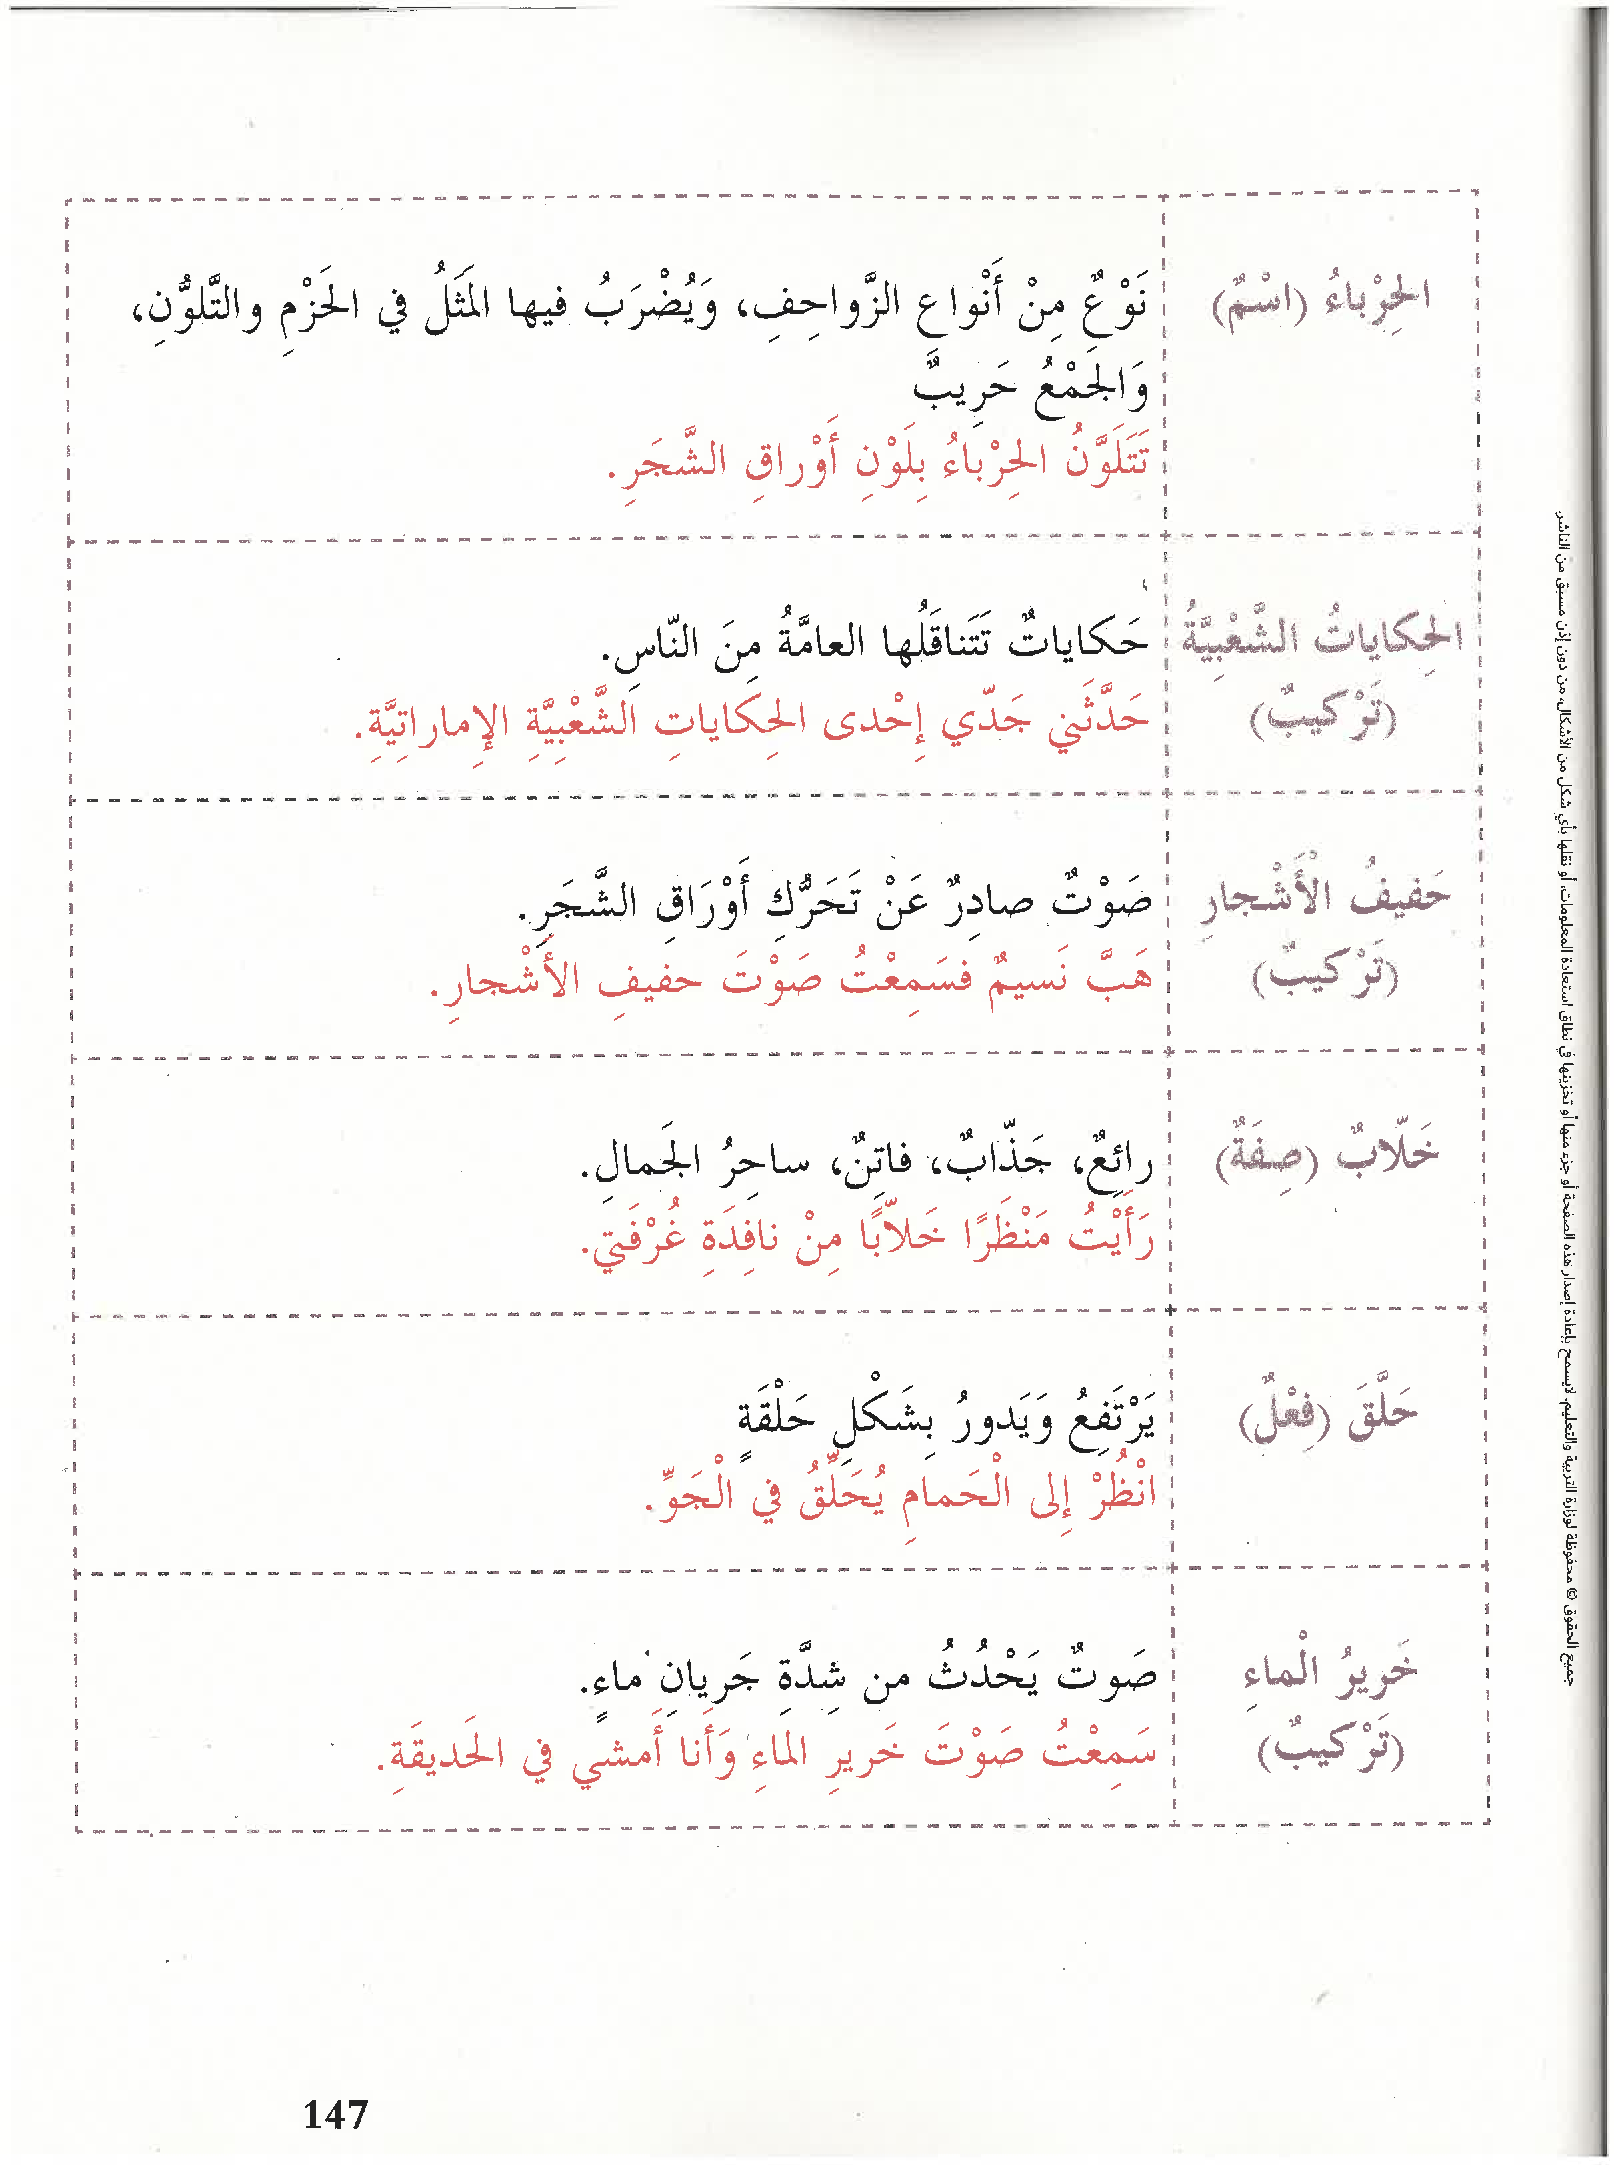 الحِرْباءُ (اسْمٌ)
نَوْعٌ مِنْ أَنْواعِ الزَّواحِفِ، وَيُضْرَبُ فيها المَثَلُ في الحَزْمِ والتَّلَوُّنِ،
وَالجَمْعُ حَرِيبٌ
تَتَلَوَّنُ الحِرْباءُ بِلَوْنِ أَوْراقِ الشَّجَرِ.
الحِكاياتُ الشَّعْبِيَّةُ
(تَرْكيبٌ)
حَكاياتٌ تَتَناقَلُها العامَّةُ مِنَ النّاسِ.
حَدَّثَني جَدّي إِحْدى الحِكاياتِ الشَّعْبِيَّةِ الإِماراتِيَّةِ.
حَفيفُ الْأَشْجارِ
(تَرْكيبٌ)
صَوْتٌ صادِرٌ عَنْ تَحَرُّكِ أَوْرَاقِ الشَّجَرِ.
هَبَّ نَسيمٌ فسَمِعْتُ صَوْتَ حفيفِ الأَشْجارِ.
خَلّابٌ (صِفَةٌ)
رائِعٌ، جَذّابٌ، فاتِنٌ، ساحِرُ الجَمالِ.
رَأَيْتُ مَنْظَرًا خَلاّبًا مِنْ نافِذَةِ غُرْفَتي.
حَلَّقَ (فِعْلٌ)
يَرْتَفِعُ وَيَدورُ بِشَكْلِ حَلْقَةٍ
انْظُرْ إِلى الْحَمامِ يُحَلِّقُ في الْجَوِّ.
خَريرُ الْماءِ
(تَرْكيبٌ)
صَوتٌ يَحْدُثُ من شِدَّةِ جَريانِ ماءٍ.
سَمِعْتُ صَوْتَ خَريرِ الماءِ وَأَنا أَمشي في الحَديقَةِ.
جميع الحقوق © محفوظة لوزارة التربية والتعليم. لايسمح بإعادة إصدار هذه الصفحة أو جزء منها أو تخزينها في نطاق استعادة المعلومات، أو نقلها بأي شكل من الأشكال، من دون إذن مسبق من الناشر.
147